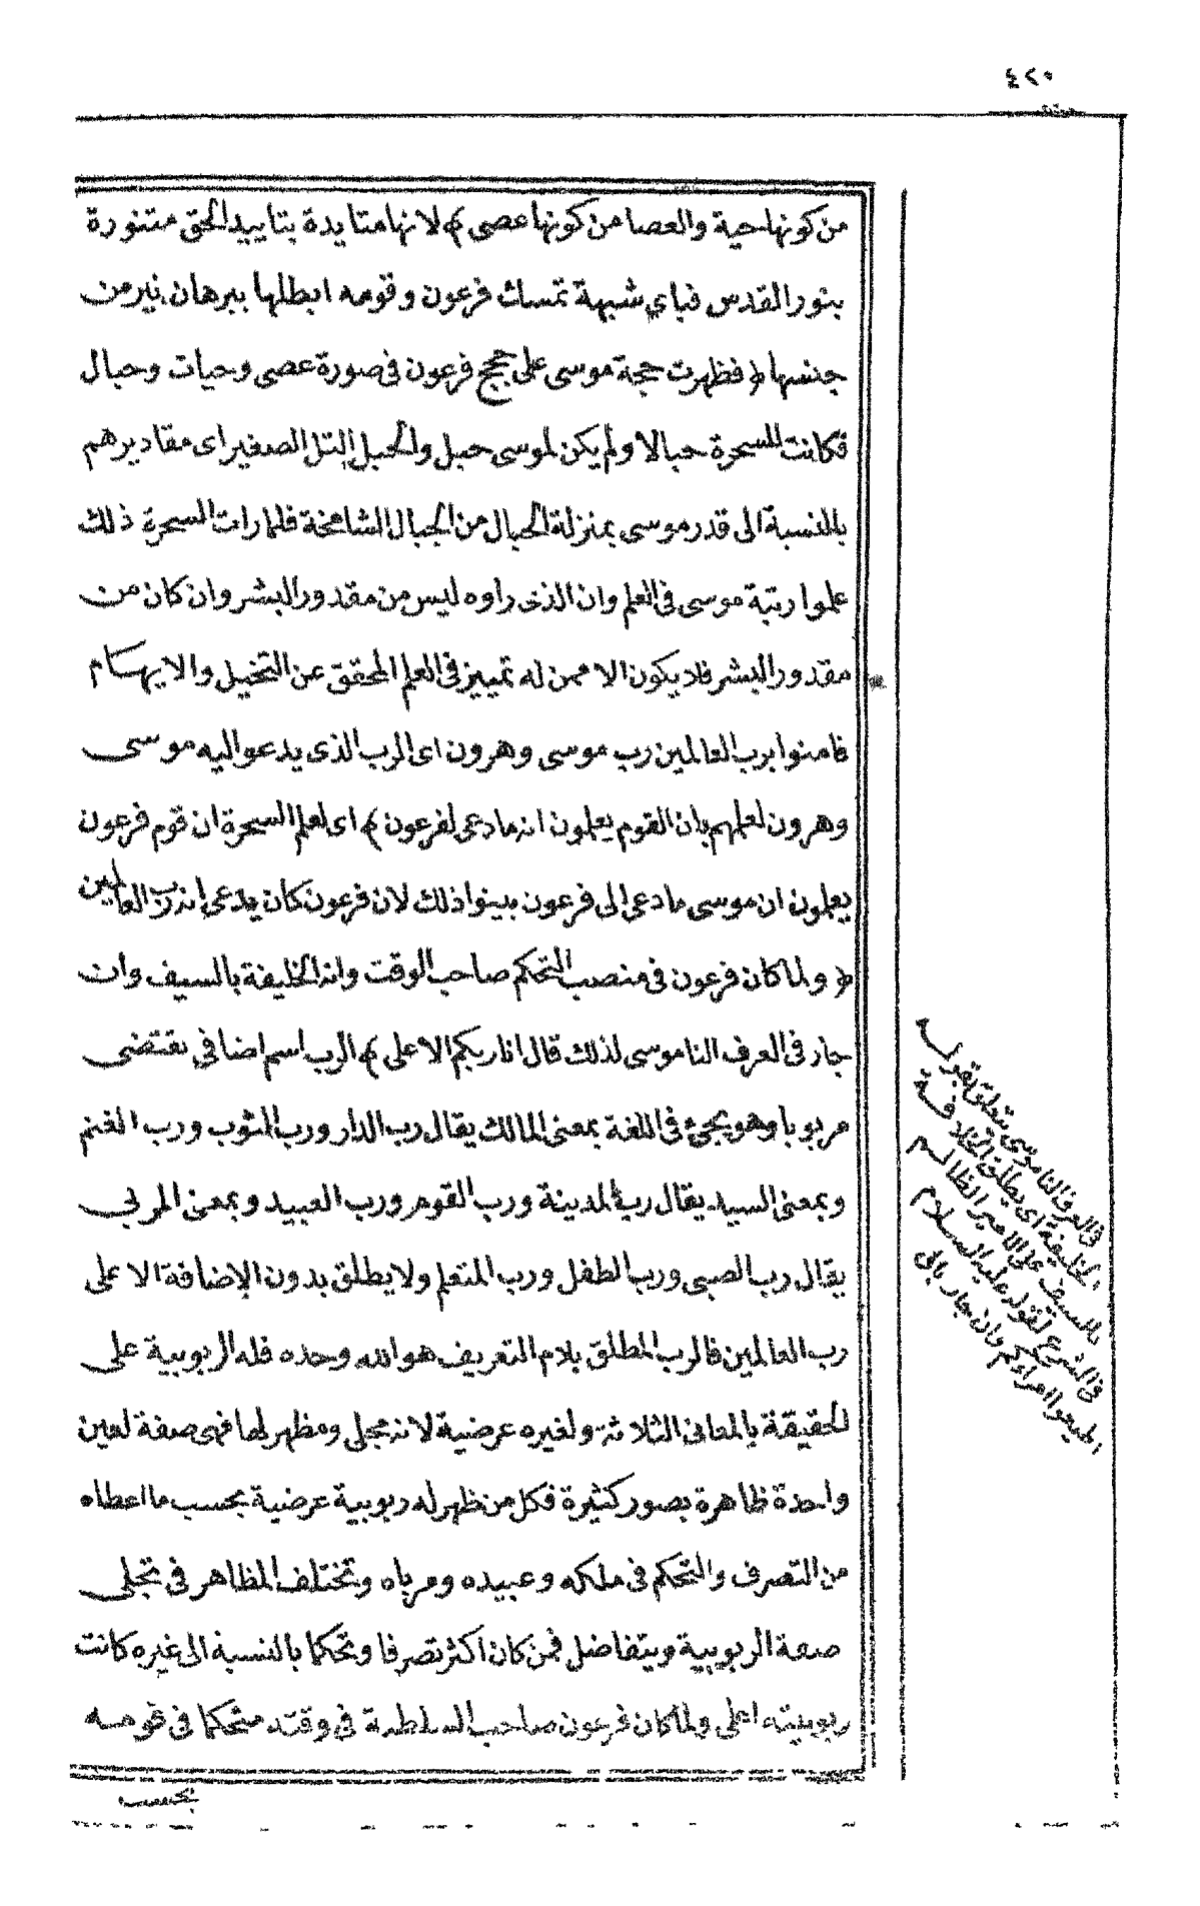 ٤٢٠
من كونها حية والعصا من كونها عصى ﴾ لانها متايدة بتاييد الحق متنورة
بنور القدس فباي شبهة تمسك فرعون وقومه ابطلها ببرهان نير من
جنسها ﴿ فظهرت حجة موسى على حجج فرعون فى صورة عصى وحيات وحبال
فكانت للسحرة حبالا ولم يكن لموسى حبل والحبل التل الصغير اى مقاديرهم
بالنسبة الى قدر موسى بمنزلة الحبال من الجبال الشامخة فلما رات السحرة ذلك
علموا رتبة موسى فى العلم وان الذى راوه ليس من مقدور البشر وان كان من
مقدور البشر فلا يكون الا ممن له تمييز فى العلم المحقق عن التخيل والايهام
فامنوا برب العالمين رب موسى وهرون اى الرب الذى يدعو اليه موسى
وهرون لعلمهم بان القوم يعلمون انه ما دعى لفرعون ﴾ اى لعلم السحرة ان قوم فرعون
يعلمون ان موسى ما دعى الى فرعون بينوا ذلك لان فرعون كان يدعى انه رب العالمين
﴿ ولما كان فرعون فى منصب التحكم صاحب الوقت وانه الخليفة بالسيف وان
جار فى العرف الناموسى لذلك قال انا ربكم الاعلى ﴾ الرب اسم اضافي يقتضى
مربوبا وهو يجئ فى اللغة بمعنى المالك يقال رب الدار ورب الثوب ورب الغنم
وبمعنى السيد يقال رب المدينة ورب القوم ورب العبيد وبمعنى المربي
يقال رب الصبى ورب الطفل ورب المتعلم ولا يطلق بدون الاضافة الا على
رب العالمين فالرب المطلق بلام التعريف هو الله وحده فله الربوبية على
الحقيقة بالمعانى الثلاثة ولغيره عرضية لانه مجلى ومظهر لها فهى صفة لعين
واحدة ظاهرة بصور كثيرة فكل من ظهر له ربوبية عرضية بحسب ما اعطاه
من التصرف والتحكم فى ملكه وعبيده ومرباه وتختلف المظاهر فى تجلى
صفة الربوبية ويتفاضل فمن كان اكثر تصرفا وتحكما بالنسبة الى غيره كانت
ربوبيته اعلى ولما كان فرعون صاحب السلطنة فى وقته متحكما فى قومه
بحسب
فى العرف الناموسى يتعلق بقوله
الخليفة اى يطلق الخلافة
بالسيف على الامير الظالم
فى الشرع لقوله عليه السلام
اطيعوا امراءكم وان جار بالى